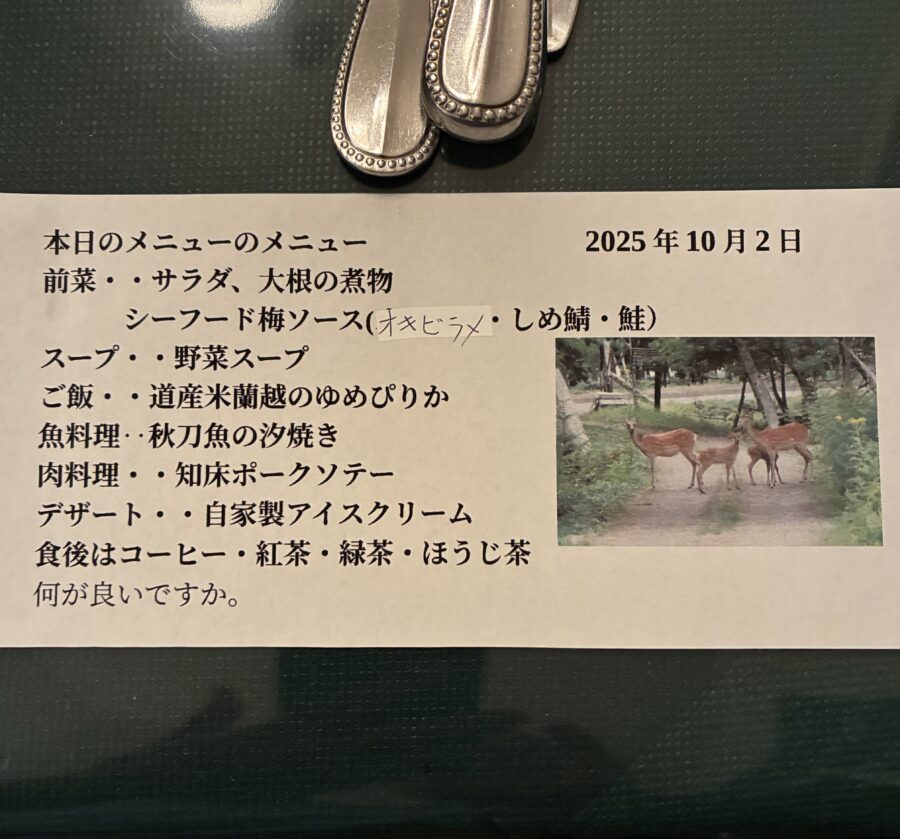 本日のメニューのメニュー 2025年10月2日
前菜・・サラダ、大根の煮物
シーフード梅ソース(オキビラメ・しめ鯖・鮭）
スープ・・野菜スープ
ご飯・・道産米蘭越のゆめぴりか
魚料理‥秋刀魚の汐焼き
肉料理・・知床ポークソテー
デザート・・自家製アイスクリーム
食後はコーヒー・紅茶・緑茶・ほうじ茶
何が良いですか。